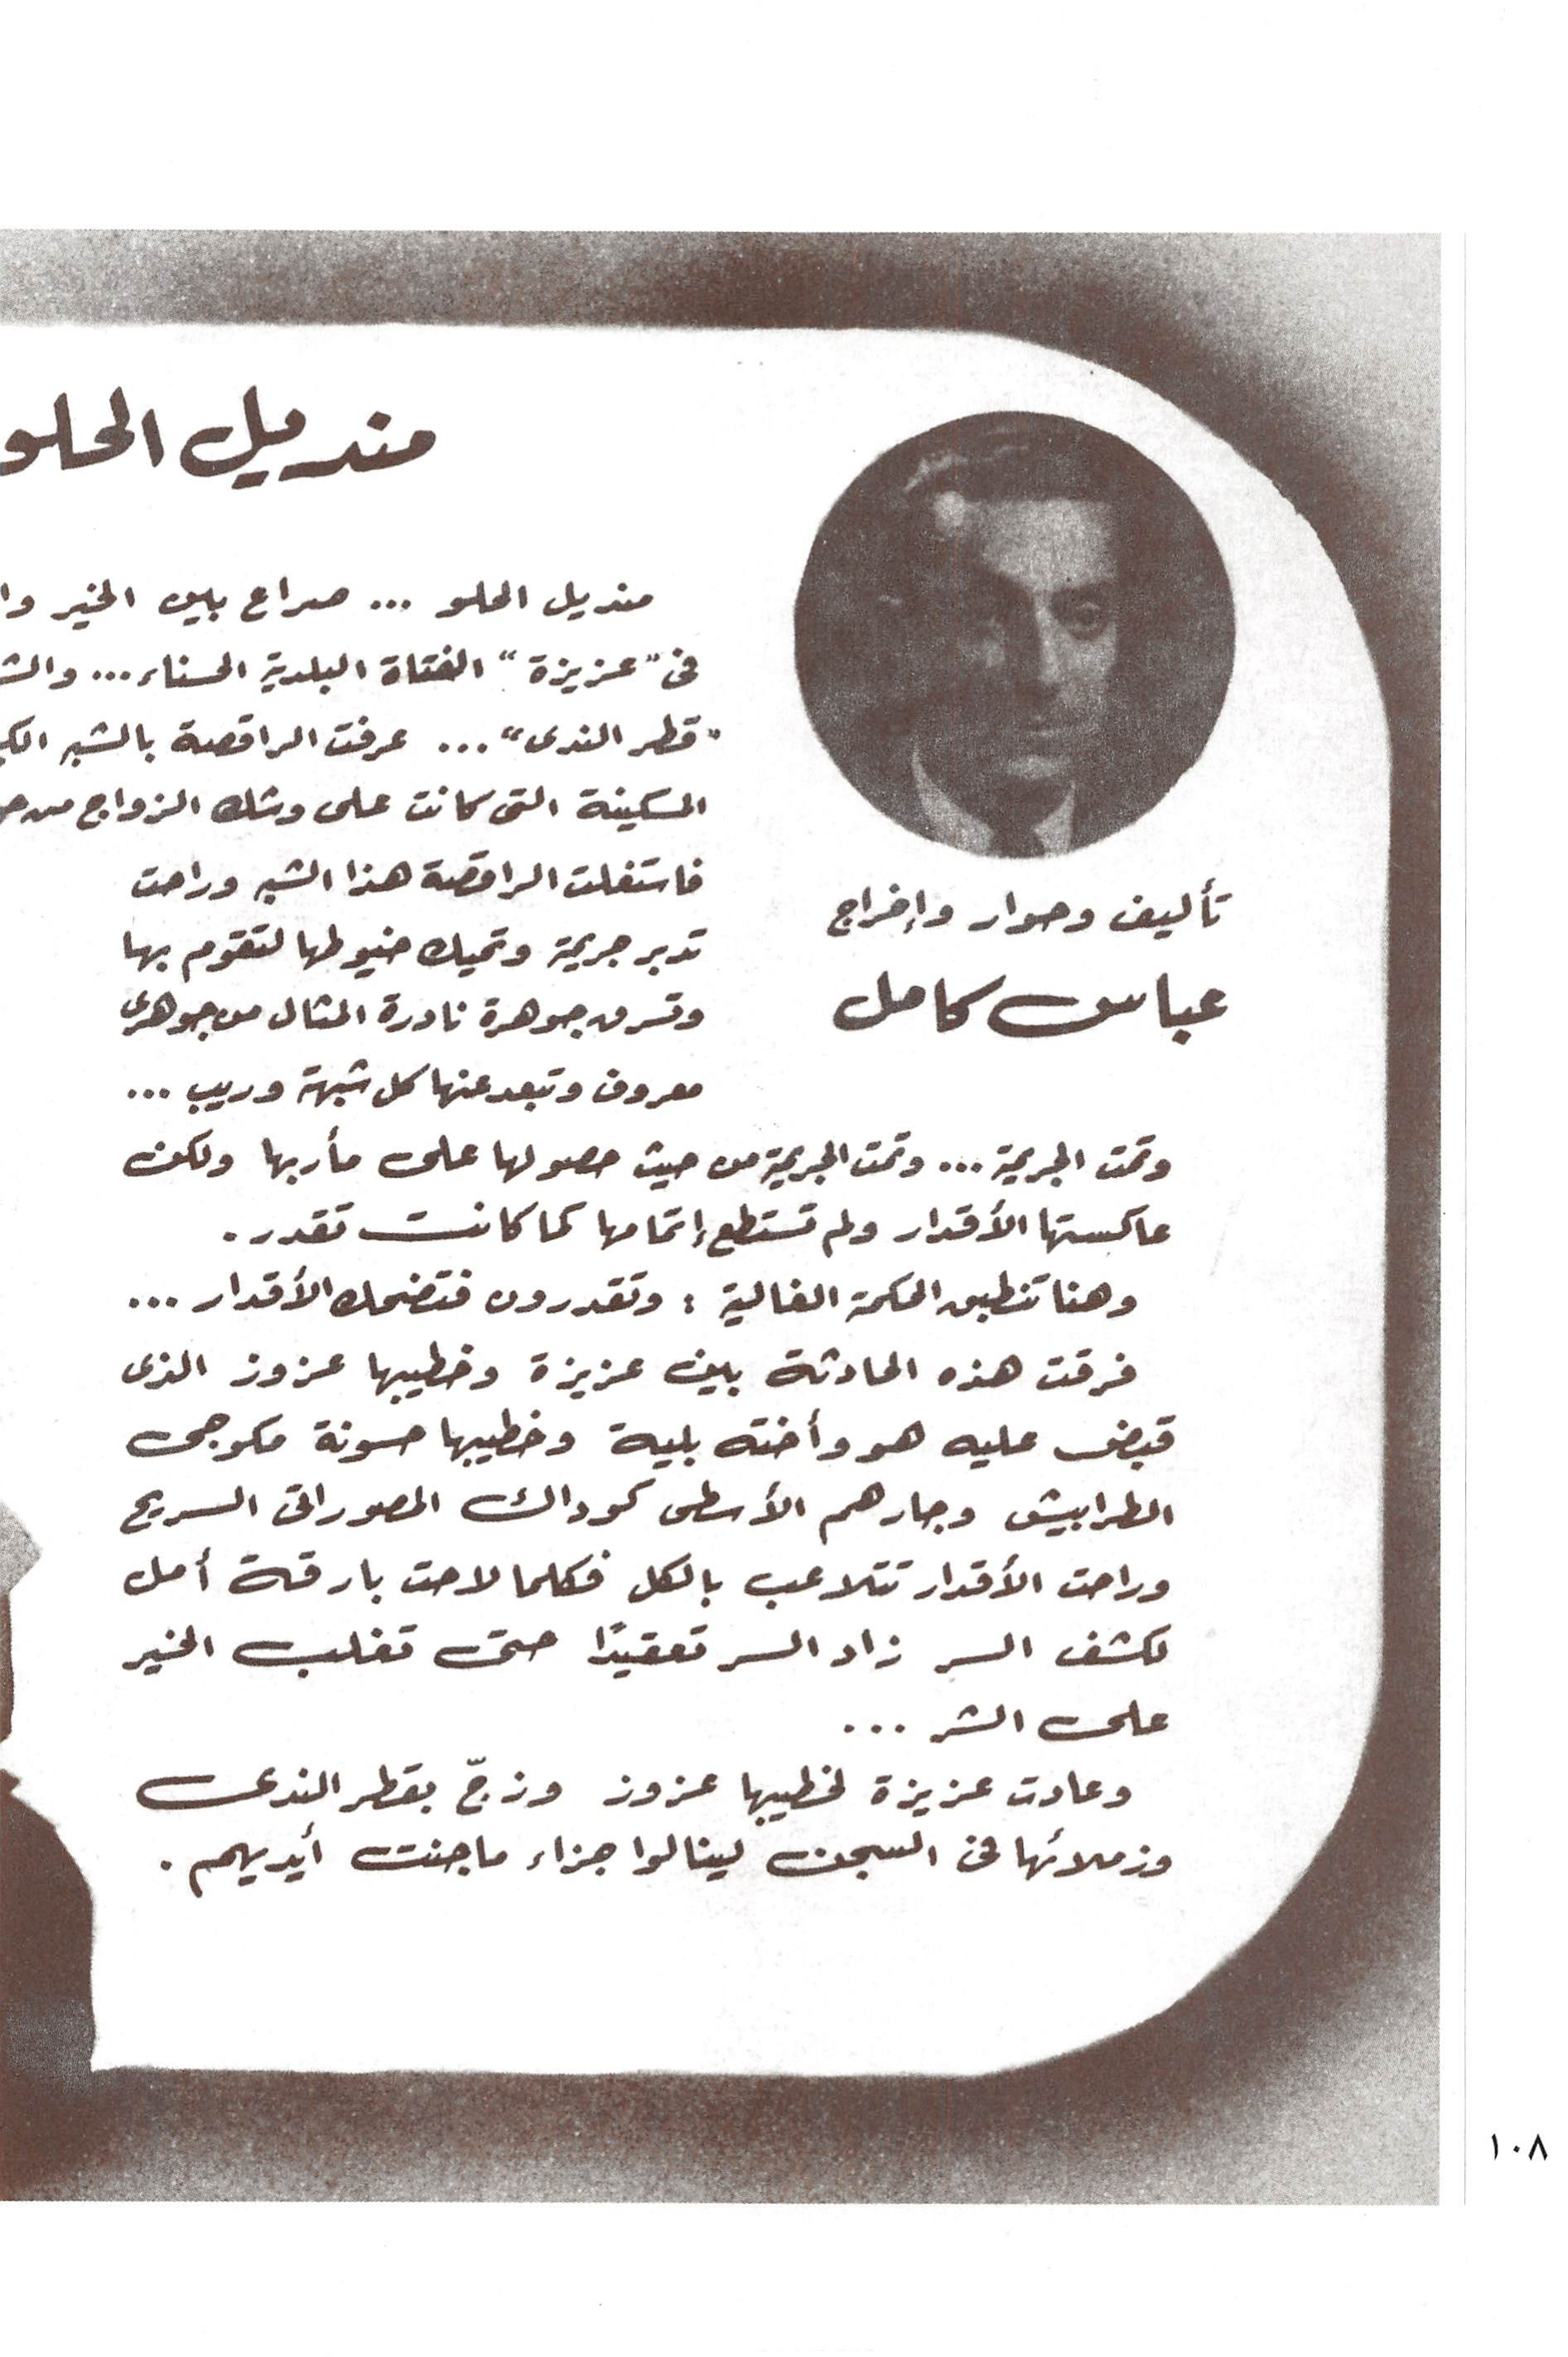 منديل الحلو
تأليف وحوار وإخراج
عباس كامل
منديل الحلو ... صراع بين الخير
فى "عزيزة" الفتاة البلدية الحسناء ...
"قطر الندى" ... عرفت الراقصة بالشبه
المسكينة التى كانت على وشك الزواج من
فاستغلت الراقصة هذا الشبه وراحت
تدبر جريمة وتحيك خيوطها لتقوم بها
وتسرق جوهرة نادرة المثال من جوهرى
معروف وتبعد عنها كل شبهة وريب ...
وتمت الجريمة ... وتمت الجريمة من حيث حصولها على مأربها ولكن
عاكستها الأقدار ولم تستطع إتمامها كما كانت تقدر .
وهنا تنطبق الحكمة الغالية : وتقدرون فتضحك الأقدار ...
فرقت هذه الحادثة بين عزيزة وخطيبها عزوز الذى
قبض عليه هو وأخته بلية وخطيبها حسونة مكوجى
الطرابيش وجارهم الأسطى كوداك المصوراتى السريح
وراحت الأقدار تتلاعب بالكل فكلما لاحت بارقة أمل
لكشف السر زاد السر تعقيدًا حتى تغلب الخير
على الشر ...
وعادت عزيزة لخطيبها عزوز وزجّ بقطر الندى
وزملائها فى السجن لينالوا جزاء ما جنت أيديهم .
١٠٨